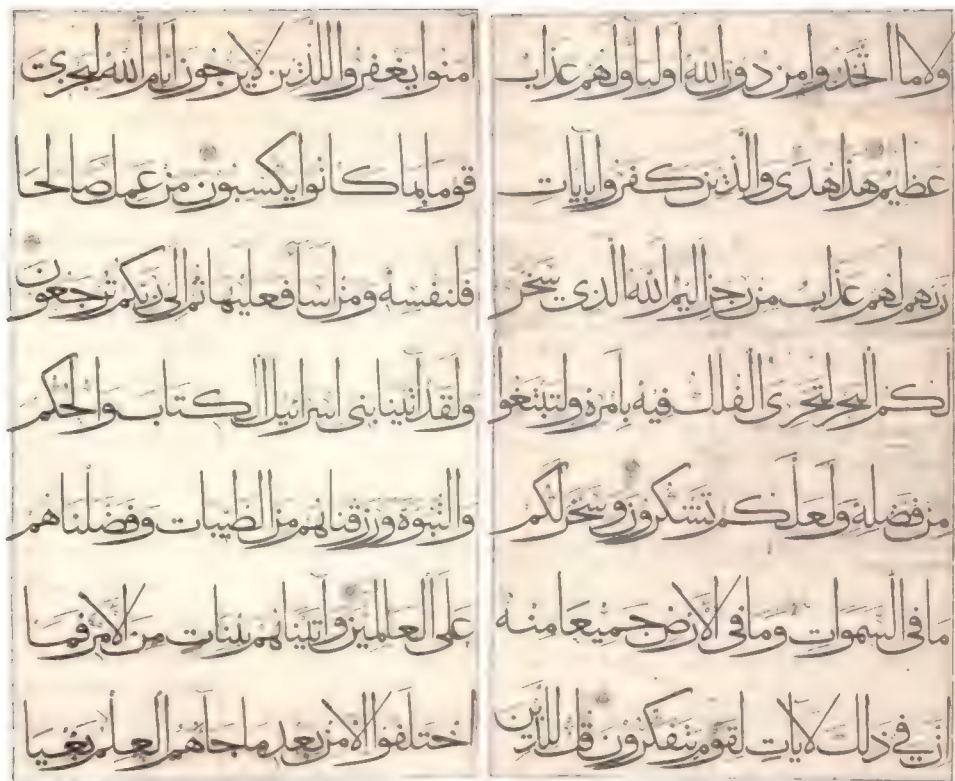 ولا ما اتخذوا من دون الله اولياء ولهم عذاب
عظيم هذا هدى والذين كفروا بآيات
ربهم لهم عذاب من رجز اليم الله الذي سخر
لكم البحر لتجري الفلك فيه بامره ولتبتغوا
من فضله ولعلكم تشكرون وسخر لكم
ما في السموات وما في الارض جميعا منه
ان في ذلك لآيات لقوم يتفكرون قل للذين
امنوا يغفروا للذين لا يرجون ايام الله ليجزي
قوما بما كانوا يكسبون من عمل صالحا
فلنفسه ومن اسا فعليها ثم الى ربكم ترجعون
ولقد آتينا بني اسرائيل الكتاب والحكم
والنبوة ورزقناهم من الطيبات وفضلناهم
على العلمين وآتيناهم بينات من الامر فما
اختلفوا الا من بعد ما جاهم العلم بغيا